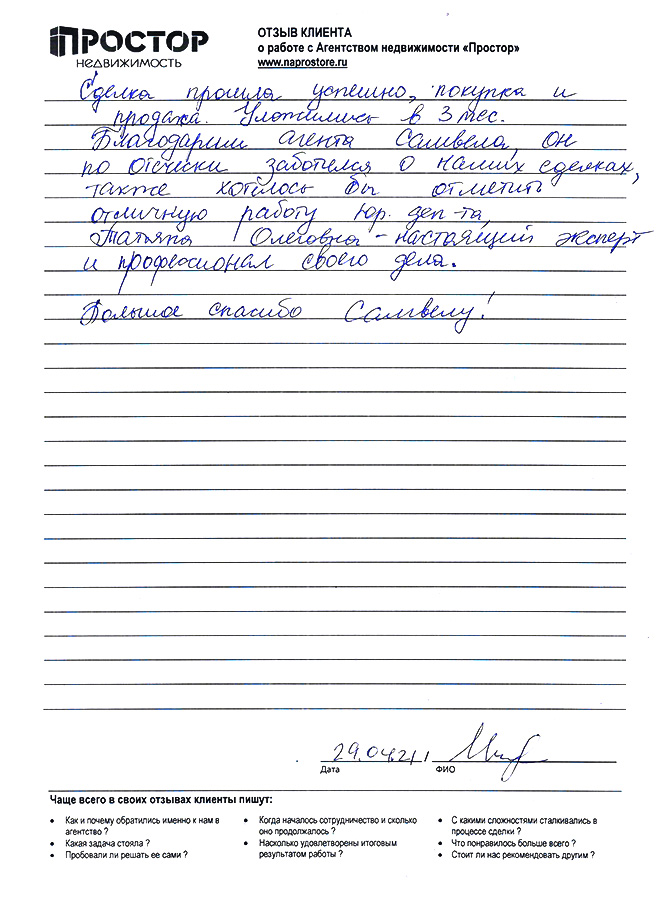 ПРОСТОР
НЕДВИЖИМОСТЬ
ОТЗЫВ КЛИЕНТА
о работе с Агентством недвижимости «Простор»
www.naprostore.ru
Сделка прошла успешно, покупка и
продажа. Уложились в 3 мес.
Благодарим агента Самвела, он
по отечески заботился о наших сделках,
также хотелось бы отметить
отличную работу юр. деп-та,
Татьяна Олеговна - настоящий эксперт
и профессионал своего дела.
Большое спасибо Самвелу!
29.04.21
Дата
ФИО
Чаще всего в своих отзывах клиенты пишут:
• Как и почему обратились именно к нам в
агентство ?
• Какая задача стояла ?
• Пробовали ли решать ее сами ?
• Когда началось сотрудничество и сколько
оно продолжалось ?
• Насколько удовлетворены итоговым
результатом работы ?
• С какими сложностями сталкивались в
процессе сделки ?
• Что понравилось больше всего ?
• Стоит ли нас рекомендовать другим ?